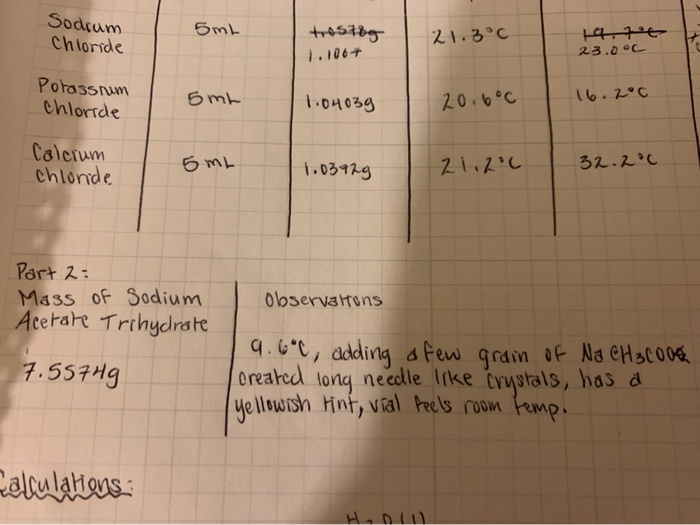 Sodium Chloride 5mL 1.0578g 1.1067 21.3°C 19.7°C 23.0°C
Potassium Chloride 5mL 1.0403g 20.6°C 16.2°C
Calcium Chloride 5mL 1.0392g 21.2°C 32.2°C
Part 2:
Mass of Sodium
Acetate Trihydrate
7.5574g
Observations
9.6°C, adding a few grain of NaCH3COO
created long needle like crystals, has a
yellowish tint, vial feels room temp.
Calculations:
H2O(l)